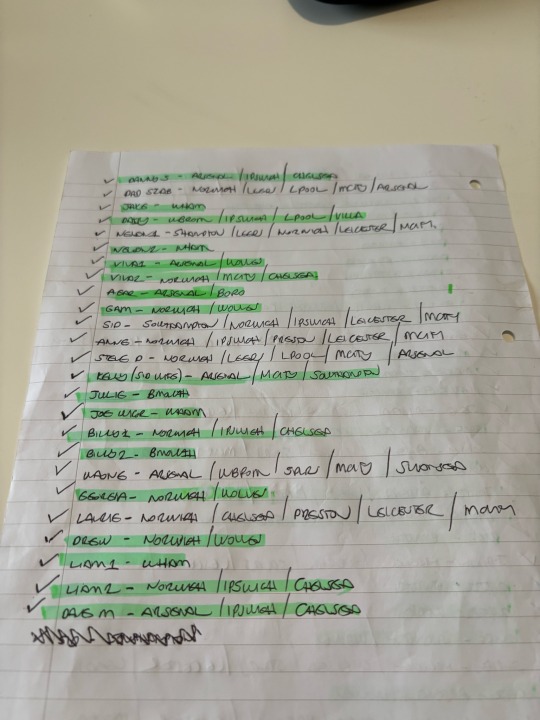 DANNO S - ARSENAL / IPSWICH / CHELSEA
DAD STAB - NORWICH / LEER / LPOOL / MCITY / ARSENAL
JAKE - WHAM
- WBROM / IPSWICH / LPOOL / VILLA
NELSON1 - SHAMPTON / LEER / NORWICH / LEICESTER / MCITY
NELSON2 - WHAM
VIVA1 - ARSENAL / WOLVES
VIVA2 - NORWICH / MCITY / CHELSEA
AGAR - ARSENAL / BORO
GAM - NORWICH / WOLVES
SID - SOUTHAMPTON / NORWICH / IPSWICH / LEICESTER / MCITY
- NORWICH / IPSWICH / PRESTON / LEICESTER / MCITY
STEVE D - NORWICH / LEER / LPOOL / MCITY / ARSENAL
KELLY (SID WIFE) - ARSENAL / MCITY / SOUTHAMPTON
JULIE - BMOUTH
JOE WICK - WHAM
BILLO1 - NORWICH / IPSWICH / CHELSEA
BILLO2 - BMOUTH
WAYNE - ARSENAL / WBROM / / MCITY / SWANSEA
GEORGIA - NORWICH / WOLVES
LAURIE - NORWICH / CHELSEA / PRESTON / LEICESTER /
DREW - NORWICH / WOLVES
LIAM1 - WHAM
LIAM2 - NORWICH / IPSWICH / CHELSEA
DAVE M - ARSENAL / IPSWICH / CHELSEA